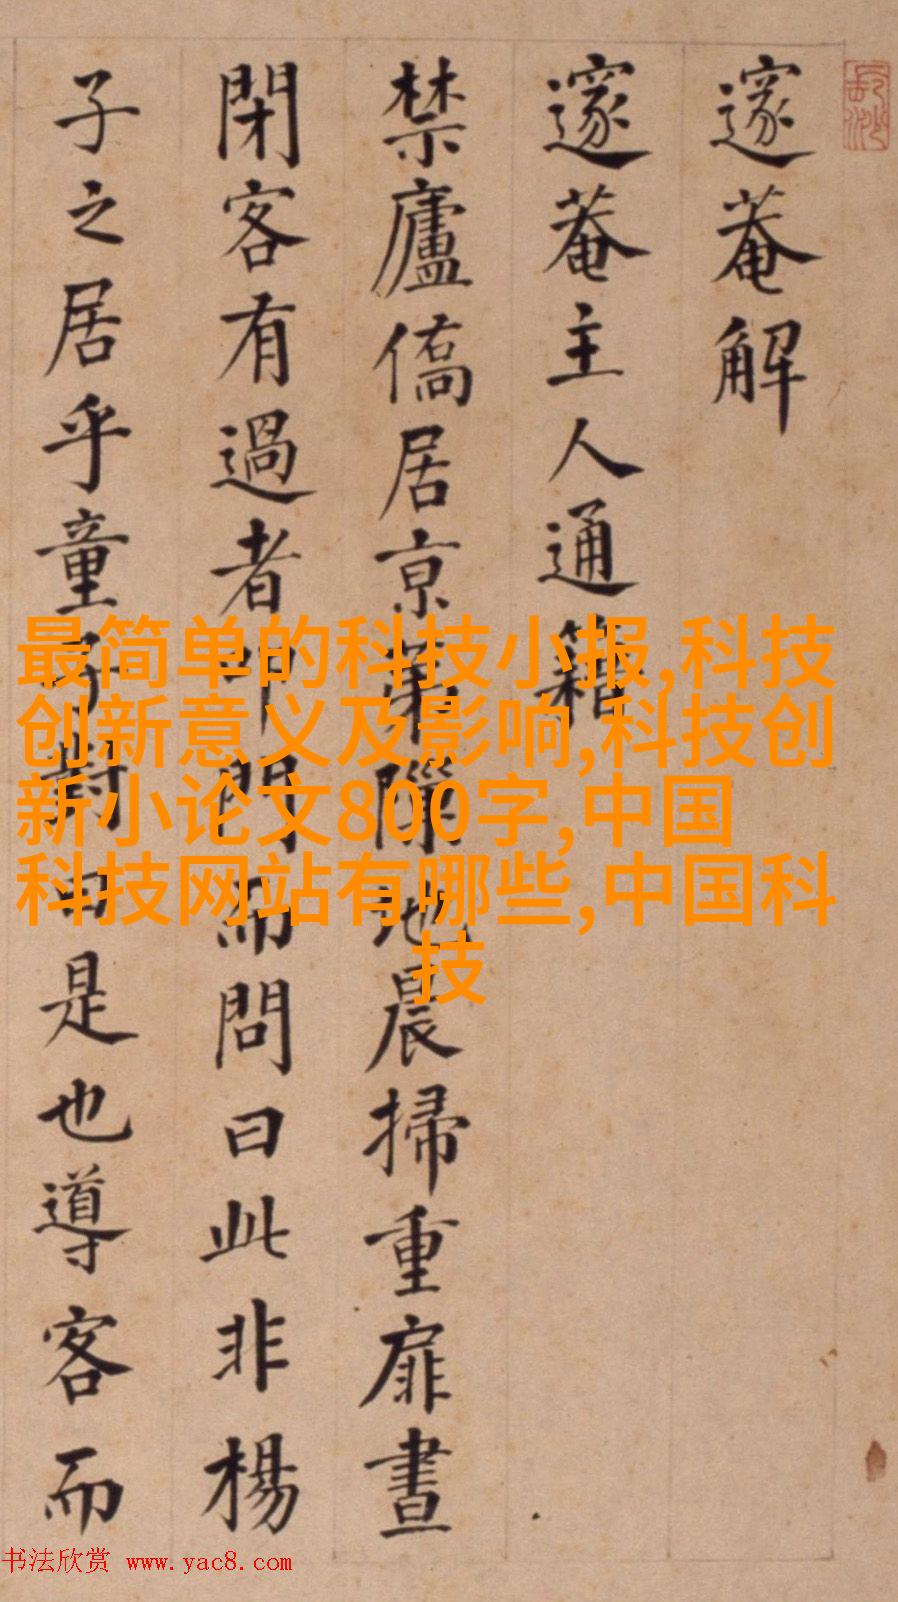 邃菴解
邃菴主人通籍
禁廬僑居京第隙地晨掃重扉晝
閉客有過者叩門而問曰此非楊
子之居乎童子對曰是也導客而
最简单的科技小报,科技
创新意义及影响,科技创
新小论文800字,中国
科技网站有哪些,中国科
技
书法欣赏 www.yac8.com